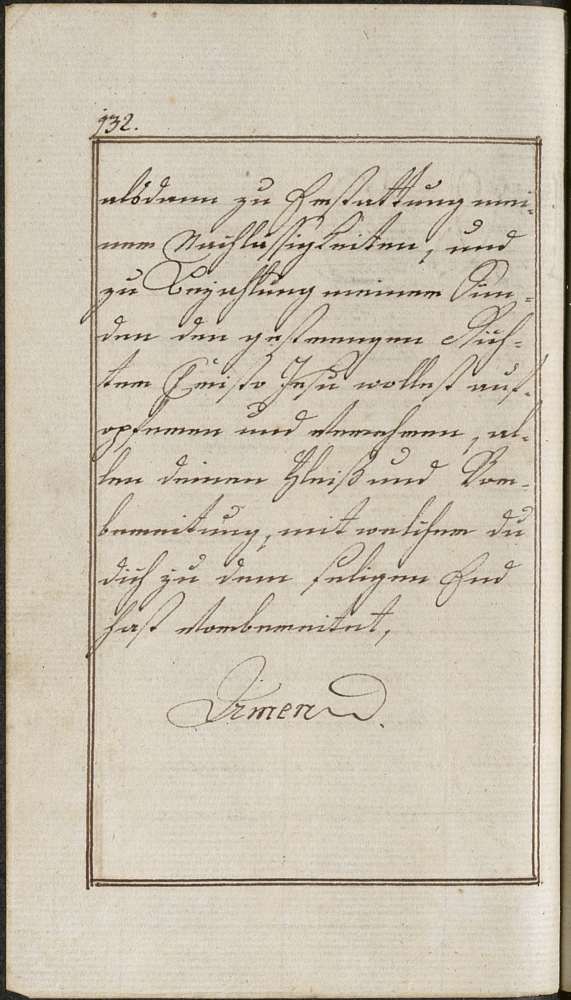 132.
alsdann zu Erstattung mei-
ner Nachlässigkeiten, und
zu Bezahlung meiner Sün-
den den gestrengen Rich-
ter Christo Jesu wollest auf-
opferen und verehren, al-
len deinen Fleiß und Vor-
bereitung, mit welcher du
dich zu dem seligen End
hast vorbereitet,
Amen.